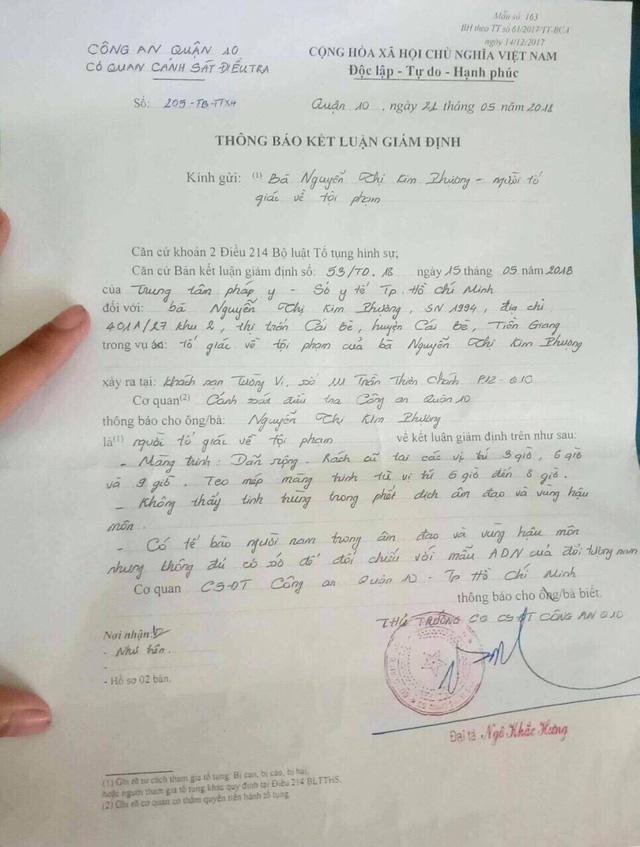 Mẫu số: 163
BH theo TT số 61/2017/TT-BCA
ngày 14/12/2017
CÔNG AN QUẬN 10
CƠ QUAN CẢNH SÁT ĐIỀU TRA
CỘNG HÒA XÃ HỘI CHỦ NGHĨA VIỆT NAM
Độc lập - Tự do - Hạnh phúc
Số: 205-TB-TTXH
Quận 10, ngày 21 tháng 05 năm 2018
THÔNG BÁO KẾT LUẬN GIÁM ĐỊNH
Kính gửi: (1) Bà Nguyễn Thị Kim Phương - người tố
giác về tội phạm
Căn cứ khoản 2 Điều 214 Bộ luật Tố tụng hình sự;
Căn cứ Bản kết luận giám định số: 53/TD.18 ngày 15 tháng 05 năm 2018
của Trung tâm pháp y - Sở y tế Tp. Hồ Chí Minh
đối với: bà Nguyễn Thị Kim Phương, SN 1994, địa chỉ
401A/27 khu 2, thị trấn Cái Bè, huyện Cái Bè, Tiền Giang
trong vụ tố giác về tội phạm của bà Nguyễn Thị Kim Phương
xảy ra tại: khách sạn Tường Vi, số 111 Trần Thiện Chánh P12-Q10
Cơ quan(2) Cảnh sát điều tra Công an Quận 10
thông báo cho ông/bà: Nguyễn Thị Kim Phương
là(1) người tố giác về tội phạm về kết luận giám định trên như sau:
- Màng trinh: Dãn rộng - Rách cũ tại các vị trí 3 giờ, 6 giờ
và 9 giờ. Teo mép màng trinh từ vị trí 6 giờ đến 8 giờ.
- Không thấy tinh trùng trong phết dịch âm đạo và vùng hậu
môn.
- Có tế bào người nam trong âm đạo và vùng hậu môn
nhưng không đủ cơ sở để đối chiếu với mẫu ADN của đối tượng nam
Cơ quan CSĐT Công an Quận 10 - Tp Hồ Chí Minh
thông báo cho ông/bà biết.
THỦ TRƯỞNG CQ CSĐT CÔNG AN Q10
Nơi nhận:
- Như trên.
- Hồ sơ 02 bản.
Đại tá Ngô Khắc Hưng
(1) Ghi rõ tư cách tham gia tố tụng: Bị can, bị cáo, bị hại,
hoặc người tham gia tố tụng khác quy định tại Điều 214 BLTTHS.
(2) Ghi rõ cơ quan có thẩm quyền tiến hành tố tụng.